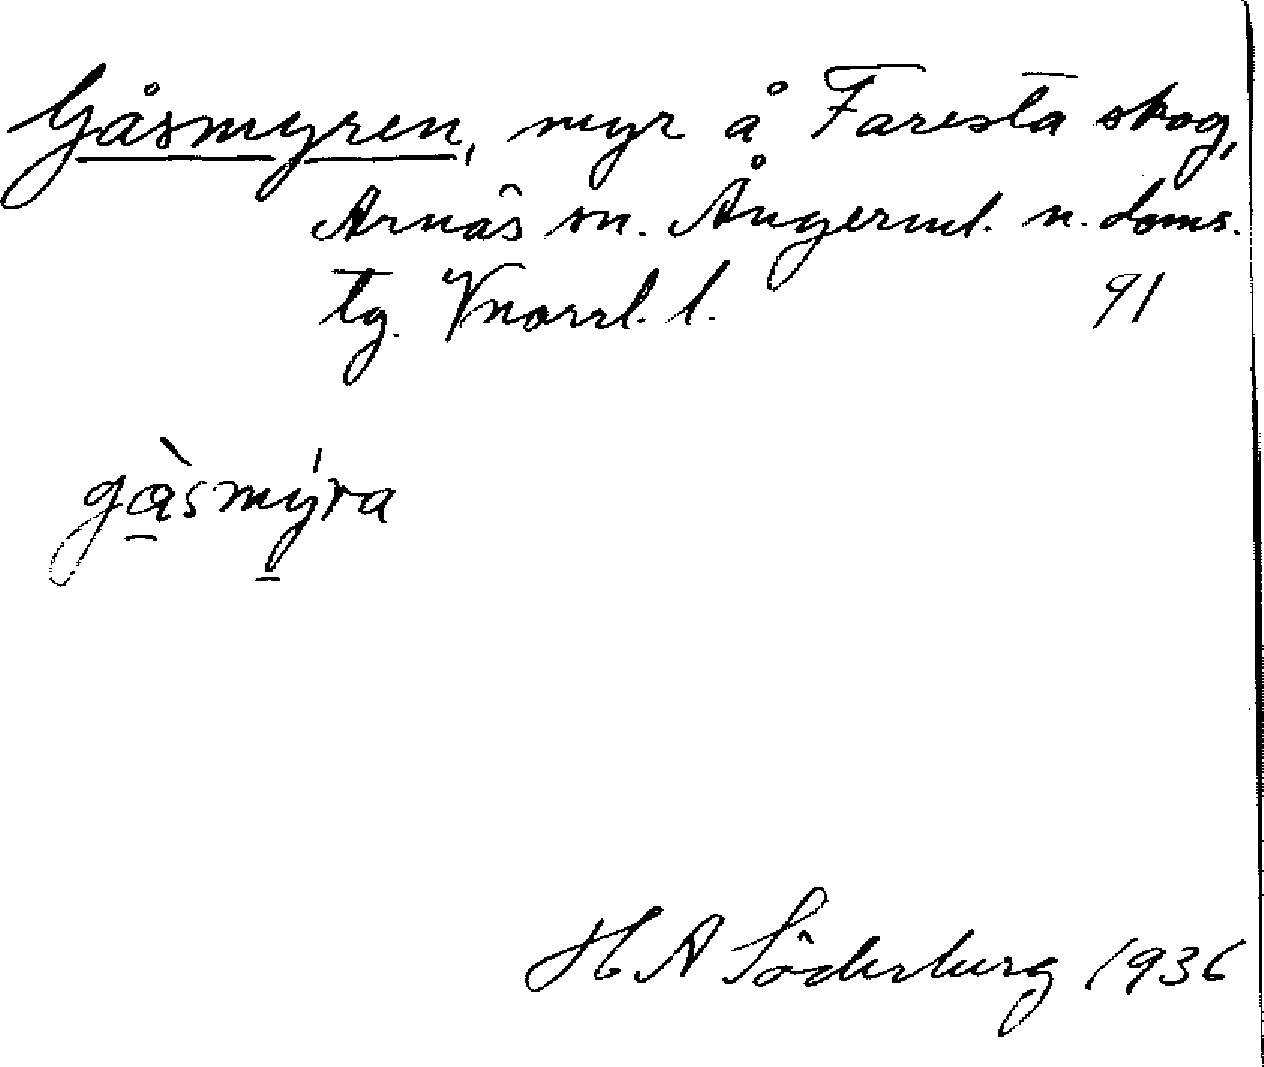 Gåsmyren, myr å Faresta skog,
Arnäs sn. Ångerml. n. doms.
tg. Vnorrl. l. 91
gàsmýra
H A Söderberg 1936